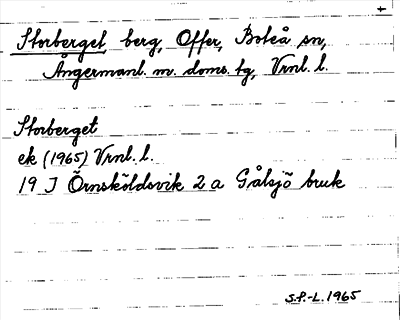 Storberget, berg, Offer, Boteå sn,
Ångermanl. m. doms. tg, Vrnl. l.
Storberget
ek (1965) Vrnl. l.
19 J Örnsköldsvik 2 a Gålsjö bruk
S.P.-L. 1965